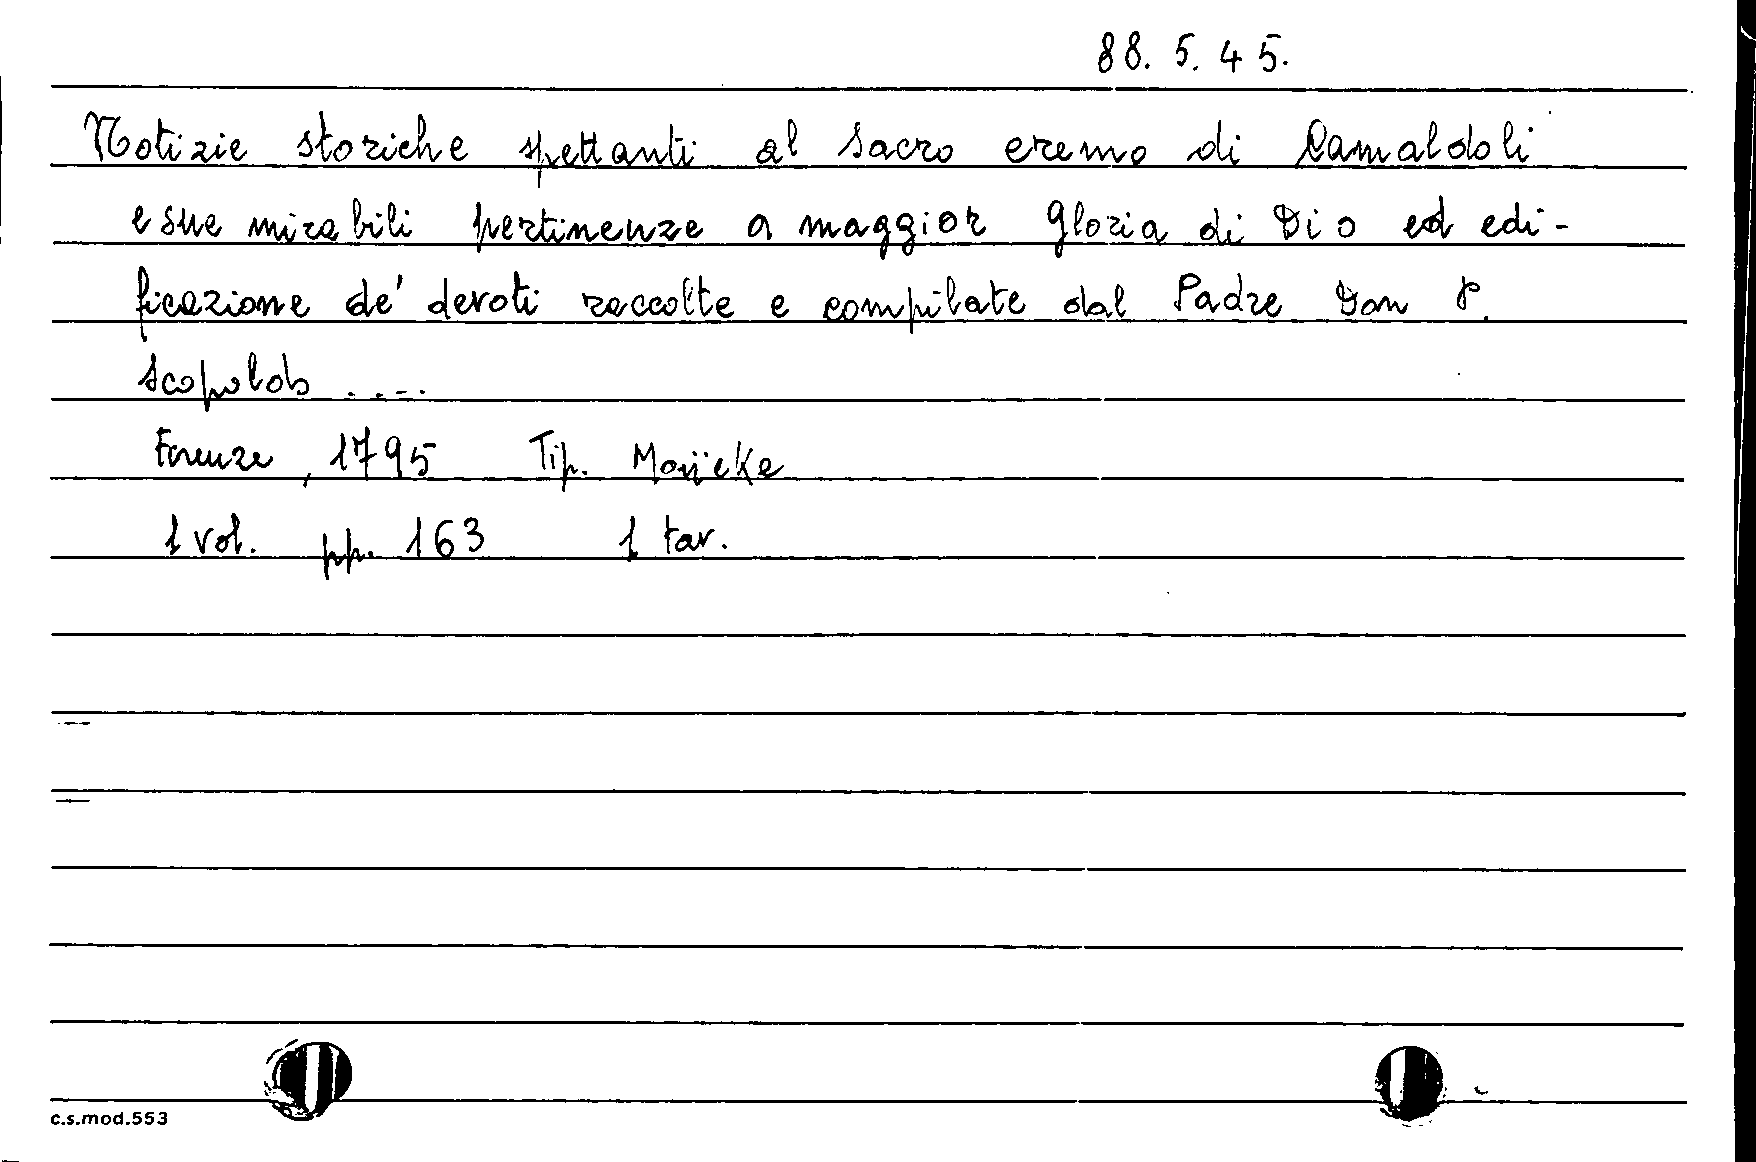 88. 5. 45.
Notizie storiche spettanti al sacro eremo di Camaldoli
e sue mirabili pertinenze a maggior gloria di Dio ed edi-
ficazione de' devoti raccolte e compilate dal Padre Don P.
Scopolob .....
Firenze, 1795 Tip. Moücke
1 vol. pp. 163 1 tav.
c.s.mod.553